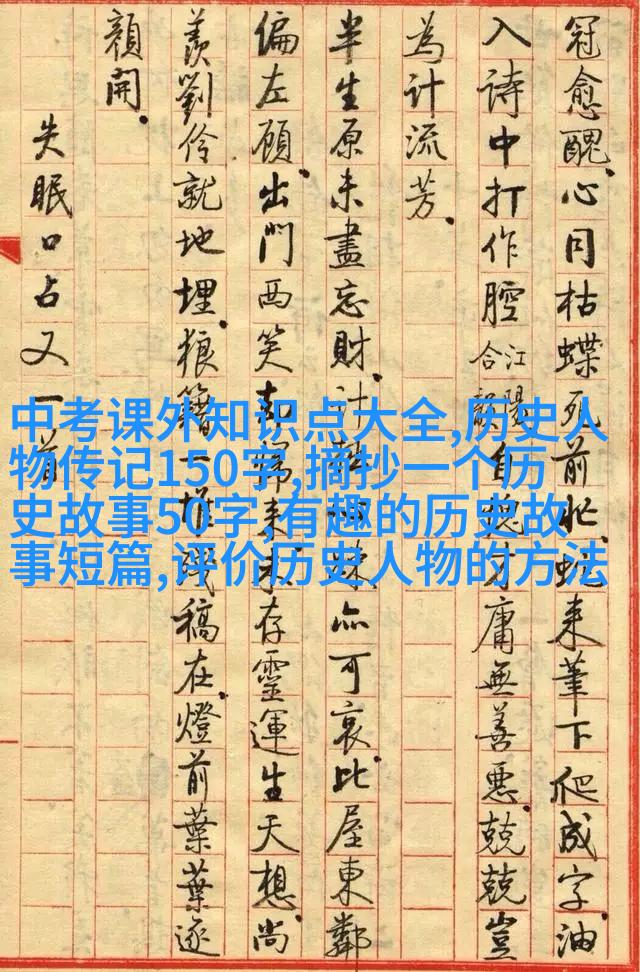 冠愈醜。心同枯蝶死前忙。蛇来筆下爬成字。油
入詩中打作腔合江陽韻。自愧才庸無善惡。兢兢豈
為計流芳。
半生原未盡忘財。計疏亦可哀。比屋東鄰
偏左顧。出門西笑却歸来。未存靈運生天想。尚
羨劉伶就地埋。狼籍一堆殘稿在。燈前葉葉逐
顏開。
失眠口占又一首
中考课外知识点大全,历史人
物传记150字,摘抄一个历
史故事50字,有趣的历史故
事短篇,评价历史人物的方法